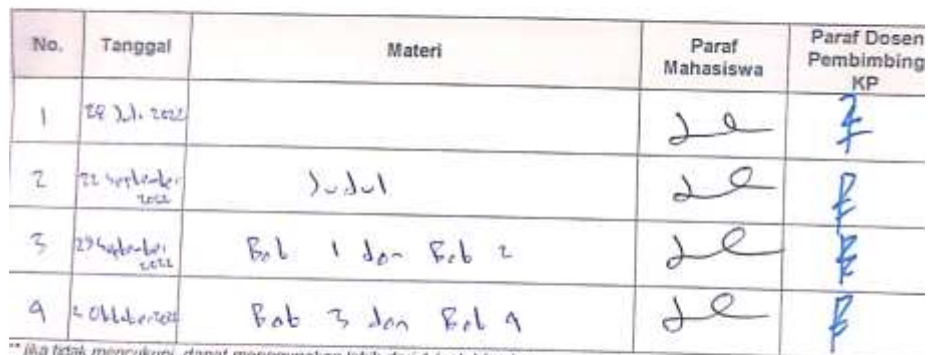 No. Tanggal Materi Paraf Mahasiswa Paraf Dosen Pembimbing KP
1 28 Juli 2022
2 22 September 2022 Judul
3 29 September 2022 Bab 1 dan Bab 2
4 Oktober 2022 Bab 3 dan Bab 4
** jika tidak mencukupi, dapat menggunakan lebih dari 1